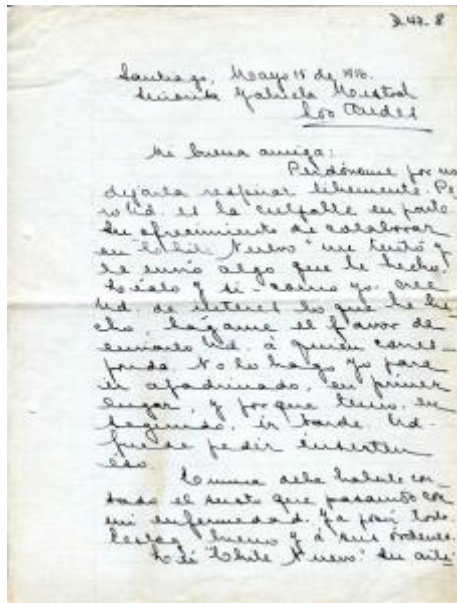 D.42.8
Santiago, Mayo 15 de 1916.
Señorita Gabriela Mistral
Los Andes
Mi buena amiga:
Perdóname por no
dejarla respirar libremente. Pe
ro Ud. es la culpable en parte.
Su ofrecimiento de colaborar
en "Chile Nuevo" me tentó y
le envío algo que he hecho.
Léalo y si como yo, cree
Ud. de interés lo que he he
cho, hágame el favor de
enviarlo Ud. á quien corres-
ponda. No lo hago yo para
ir apadrinado, en primer
lugar, y porque temo, en
segundo, ir tarde. Ud.
puede pedir inserten
eso.
debe haberle con
tado el susto que pasamos con
mi enfermedad. Ya pasó todo.
bueno y á sus órdenes.
Leí "Chile Nuevo". Su artí